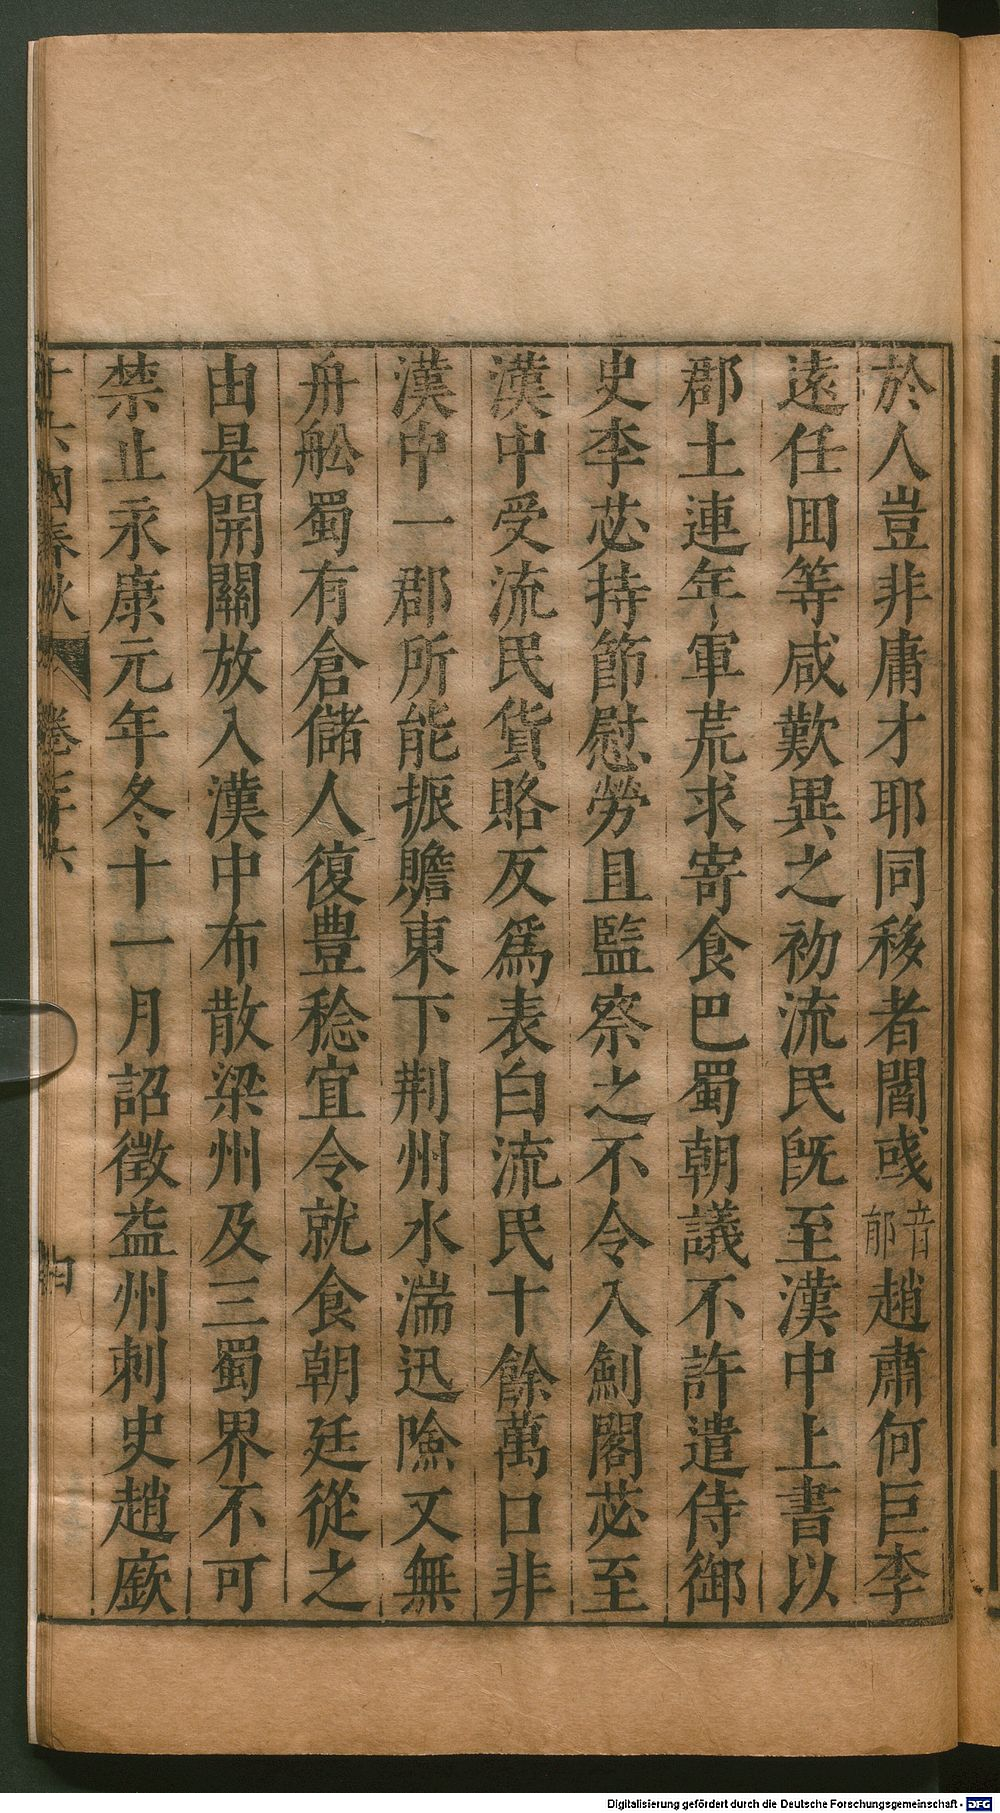 於人豈非庸才耶同移者閻彧音郁趙肅何巨李
遠任囬等咸歎異之初流民旣至漢中上書以
郡土連年軍荒求寄食巴蜀朝議不許遣侍御
史李苾持節慰勞且監察之不令入劍閣苾至
漢中受流民貨賂反爲表白流民十餘萬口非
漢中一郡所能振贍東下荆州水湍迅險又無
舟舩蜀有倉儲人復豊稔宜令就食朝廷從之
由是開關放入漢中布散梁州及三蜀界不可
禁止永康元年冬十一月詔徵益州刺史趙廞
十六國春秋 卷七十六
Digitalisierung gefördert durch die Deutsche Forschungsgemeinschaft - DFG